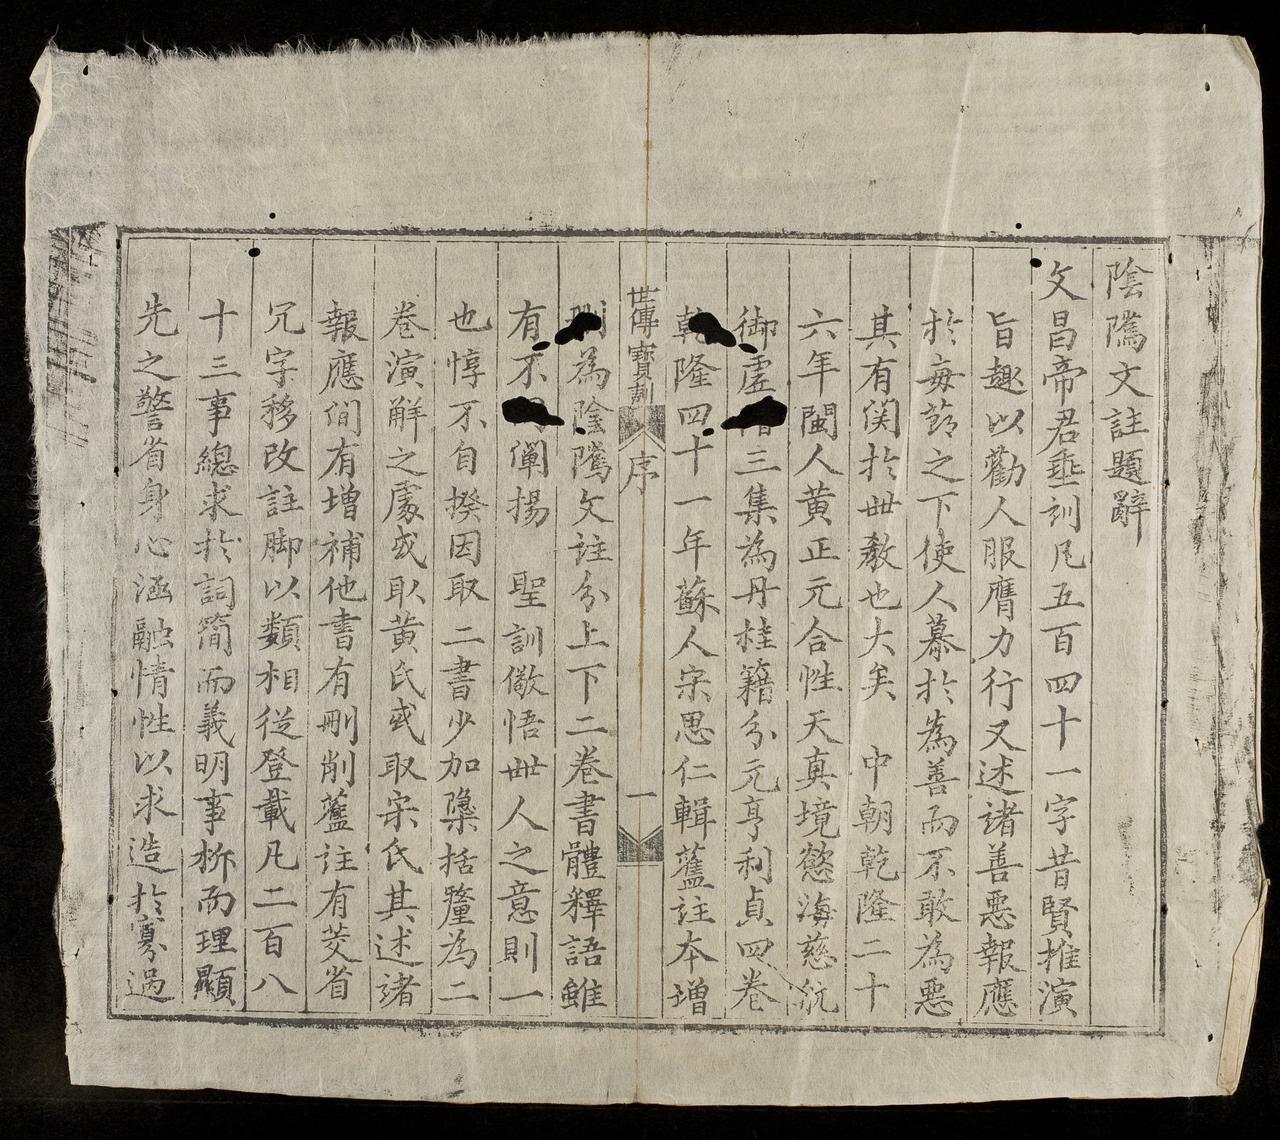 陰隲文註題辭
文昌帝君垂訓凡五百四十一字昔賢推演
旨趣以勸人服膺力行又述諸善惡報應
於每莭之下使人慕於為善而不敢為惡
其有関於世教也大矣　中朝乾隆二十
六年閩人黄正元合性天真境慾海慈航
御虛三集為丹桂籍分元亨利貞四卷
乾隆四十一年蘇人宋思仁輯舊註本增
世傳寶訓　序　一
刪為陰隲文註分上下二卷書體釋語雖
有不闡揚　聖訓儆悟世人之意則一
也惇不自揆因取二書少加檃括釐為二
卷演解之處或取黄氏或取宋氏其述諸
報應間有增補他書有刪削舊註有芟省
冗字移改註脚以類相從登載凡二百八
十三事總求於詞簡而義明事析而理顯
先之警省身心涵融情性以求造於寡過